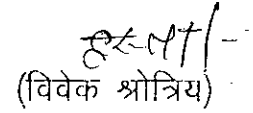 हस्ता/-
(विवेक श्रोत्रिय)